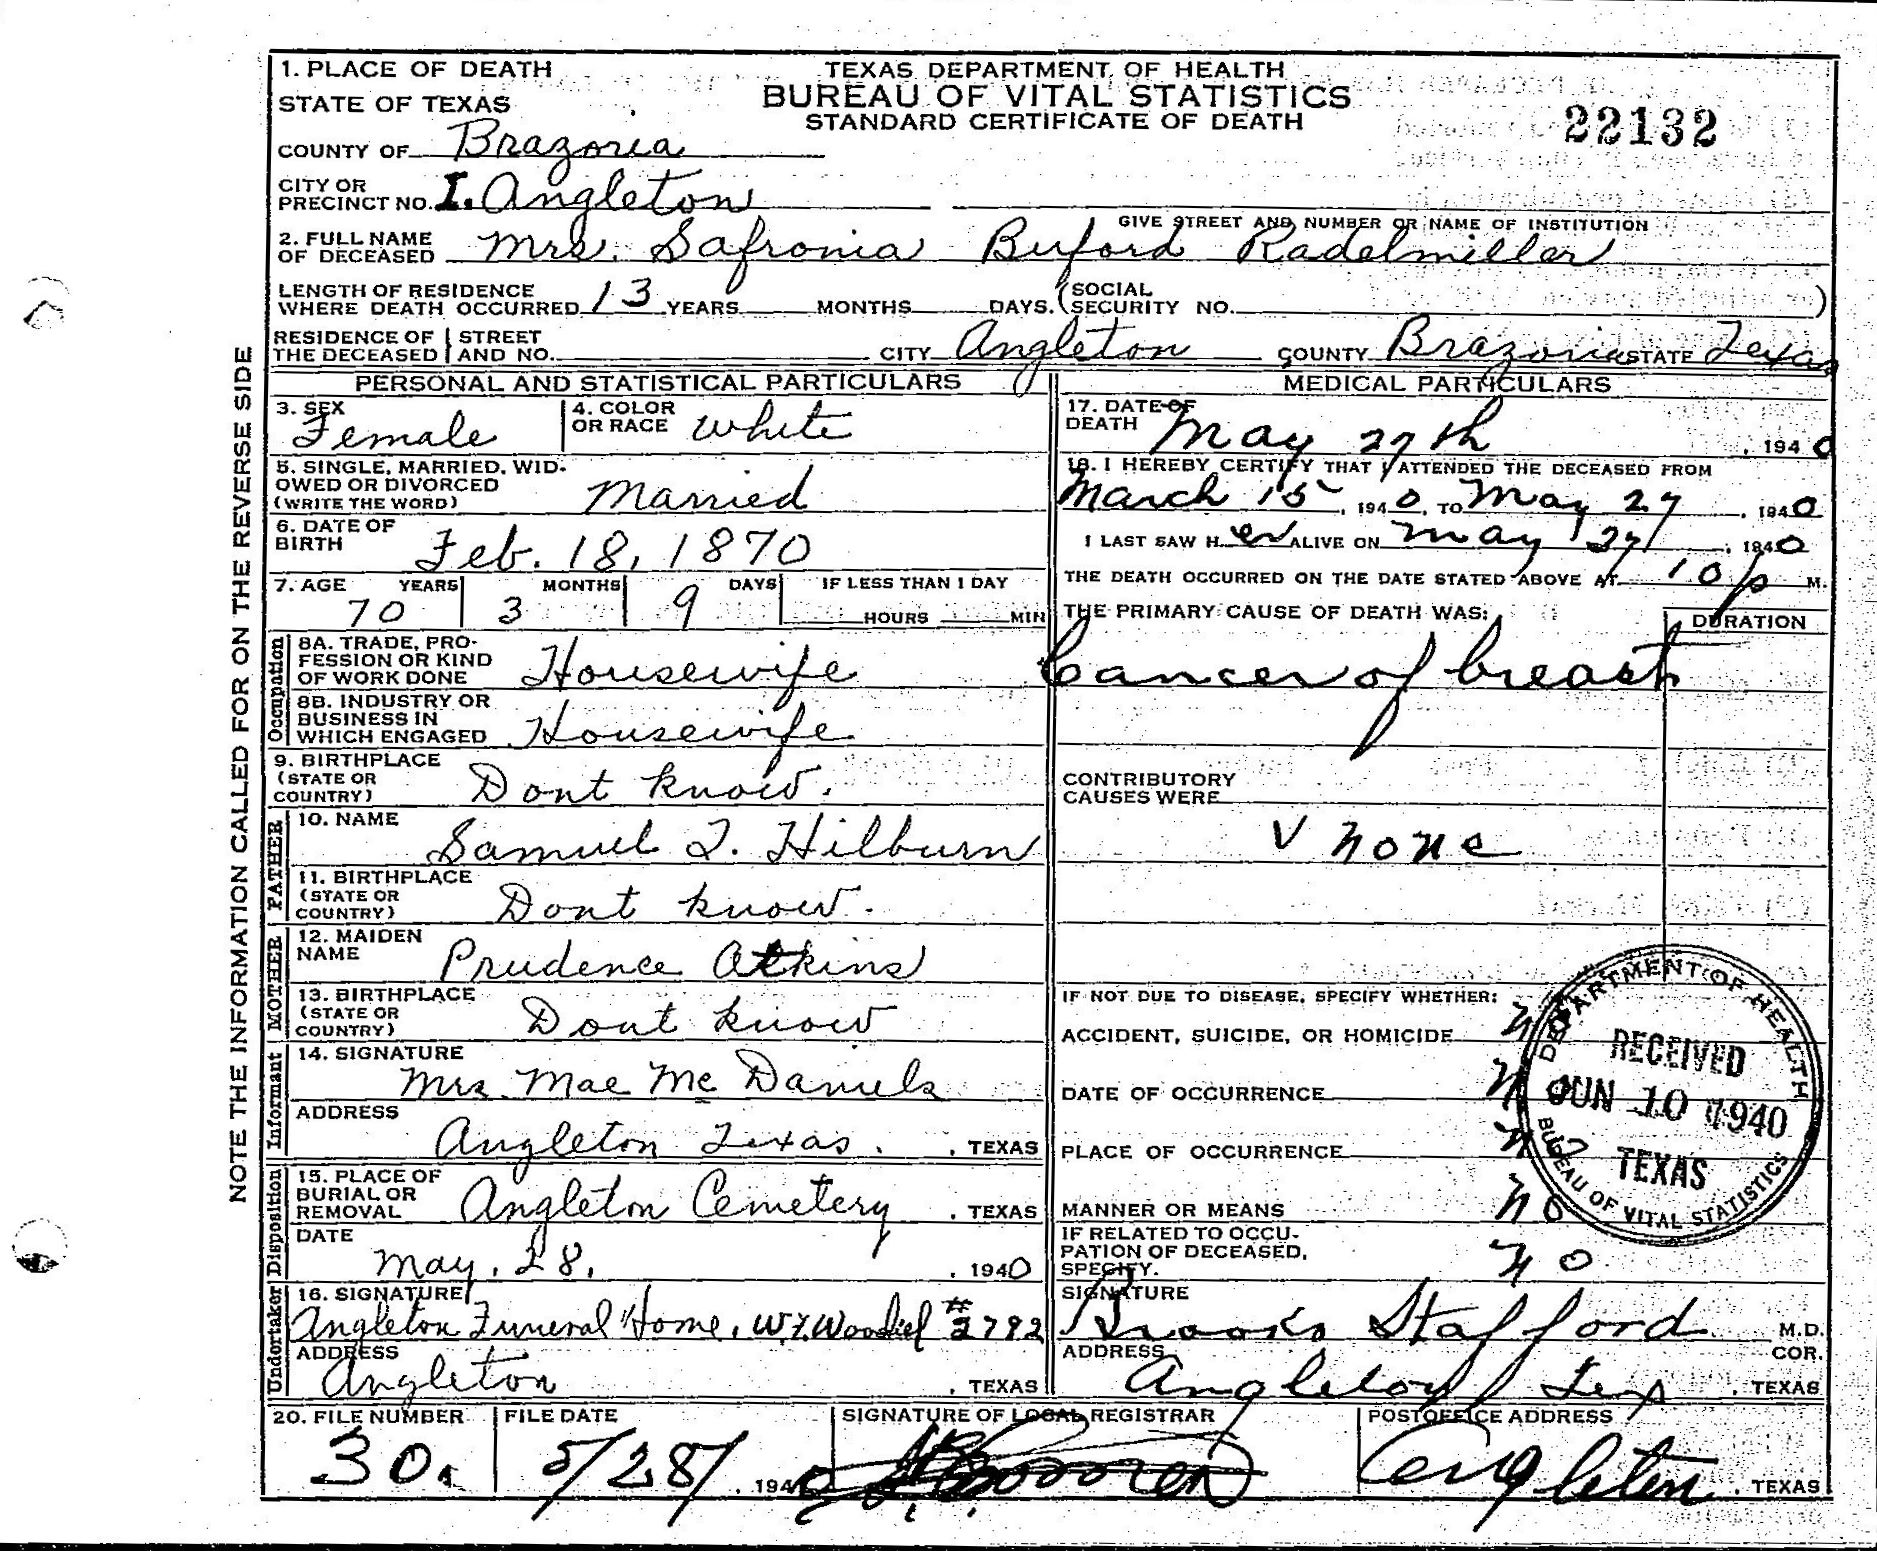 1. PLACE OF DEATH
STATE OF TEXAS
TEXAS DEPARTMENT OF HEALTH
BUREAU OF VITAL STATISTICS
STANDARD CERTIFICATE OF DEATH
22132
COUNTY OF Brazoria
CITY OR PRECINCT NO. I. Angleton
GIVE STREET AND NUMBER OR NAME OF INSTITUTION
2. FULL NAME OF DECEASED Mrs. Safronia Buford Radelmiller
LENGTH OF RESIDENCE WHERE DEATH OCCURRED 13 YEARS MONTHS DAYS. (SOCIAL SECURITY NO. )
RESIDENCE OF THE DECEASED STREET AND NO. CITY Angleton COUNTY Brazoria STATE Texas
NOTE THE INFORMATION CALLED FOR ON THE REVERSE SIDE
PERSONAL AND STATISTICAL PARTICULARS
3. SEX Female
4. COLOR OR RACE White
5. SINGLE, MARRIED, WIDOWED OR DIVORCED (WRITE THE WORD) Married
6. DATE OF BIRTH Feb. 18, 1870
7. AGE YEARS 70 MONTHS 3 DAYS 9 IF LESS THAN 1 DAY HOURS MIN
Occupation
8A. TRADE, PROFESSION OR KIND OF WORK DONE Housewife
8B. INDUSTRY OR BUSINESS IN WHICH ENGAGED Housewife
9. BIRTHPLACE (STATE OR COUNTRY) Dont know.
FATHER
10. NAME Samuel T. Hilburn
11. BIRTHPLACE (STATE OR COUNTRY) Dont know.
MOTHER
12. MAIDEN NAME Prudence Atkins
13. BIRTHPLACE (STATE OR COUNTRY) Dont know
Informant
14. SIGNATURE Mrs. Mae Mc Daniels
ADDRESS Angleton Texas. , TEXAS
Disposition
15. PLACE OF BURIAL OR REMOVAL Angleton Cemetery , TEXAS
DATE May. 28. , 1940
Undertaker
16. SIGNATURE Angleton Funeral Home, W.F. Woodief #2792
ADDRESS Angleton , TEXAS
MEDICAL PARTICULARS
17. DATE OF DEATH May 27th , 1940
18. I HEREBY CERTIFY THAT I ATTENDED THE DECEASED FROM
March 15 , 1940, TO May 27 , 1940
I LAST SAW H er ALIVE ON May 27 , 1940
THE DEATH OCCURRED ON THE DATE STATED ABOVE AT 10 p M.
THE PRIMARY CAUSE OF DEATH WAS: DURATION
Cancer of breast
CONTRIBUTORY CAUSES WERE
V none
IF NOT DUE TO DISEASE, SPECIFY WHETHER:
ACCIDENT, SUICIDE, OR HOMICIDE no
DATE OF OCCURRENCE no
PLACE OF OCCURRENCE no
MANNER OR MEANS no
IF RELATED TO OCCUPATION OF DECEASED, SPECIFY. no
DEPARTMENT OF HEALTH
RECEIVED
JUN 10 1940
TEXAS
BUREAU OF VITAL STATISTICS
SIGNATURE Brooks Stafford M.D. COR.
ADDRESS Angleton Tex , TEXAS
20. FILE NUMBER 30.
FILE DATE 5/28/ , 1940
SIGNATURE OF LOCAL REGISTRAR
POSTOFFICE ADDRESS Angleton , TEXAS